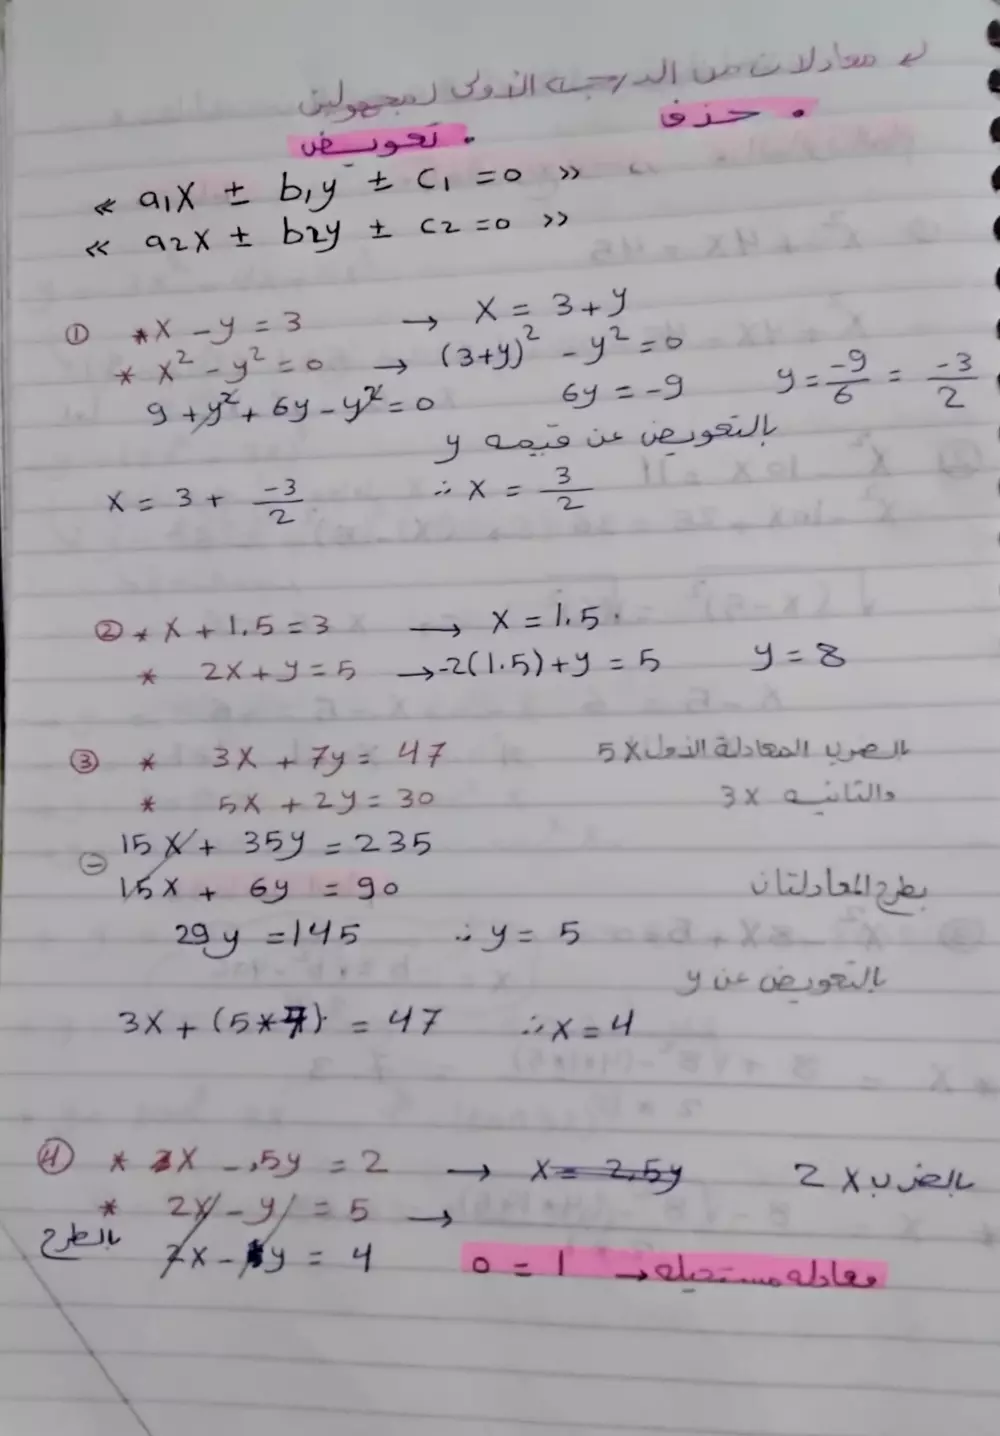 معادلات من الدرجه الأولى لمجهولين
• حذف • تعويض
« a₁x ± b₁y ± c₁ = 0 »
« a₂x ± b₂y ± c₂ = 0 »
① * x - y = 3 → x = 3 + y
* x² - y² = 0 → (3+y)² - y² = 0
9 + y² + 6y - y² = 0 6y = -9 y = -9/6 = -3/2
بالتعويض عن قيمه y
x = 3 + -3/2 ∴ x = 3/2
② * x + 1.5 = 3 → x = 1.5
* 2x + y = 5 → -2(1.5) + y = 5 y = 8
③ * 3x + 7y = 47 بالضرب المعادلة الأول 5x
* 5x + 2y = 30 والثانيه 3x
15x + 35y = 235
- 15x + 6y = 90 بطرح المعادلتان
29y = 145 ∴ y = 5
بالتعويض عن y
3x + (5*7) = 47 ∴ x = 4
④ * x - .5y = 2 → x = 2.5y بالضرب x 2
* 2x - y = 5 →
بالطرح 2x - y = 4 0 = 1 → معادله مستحيله